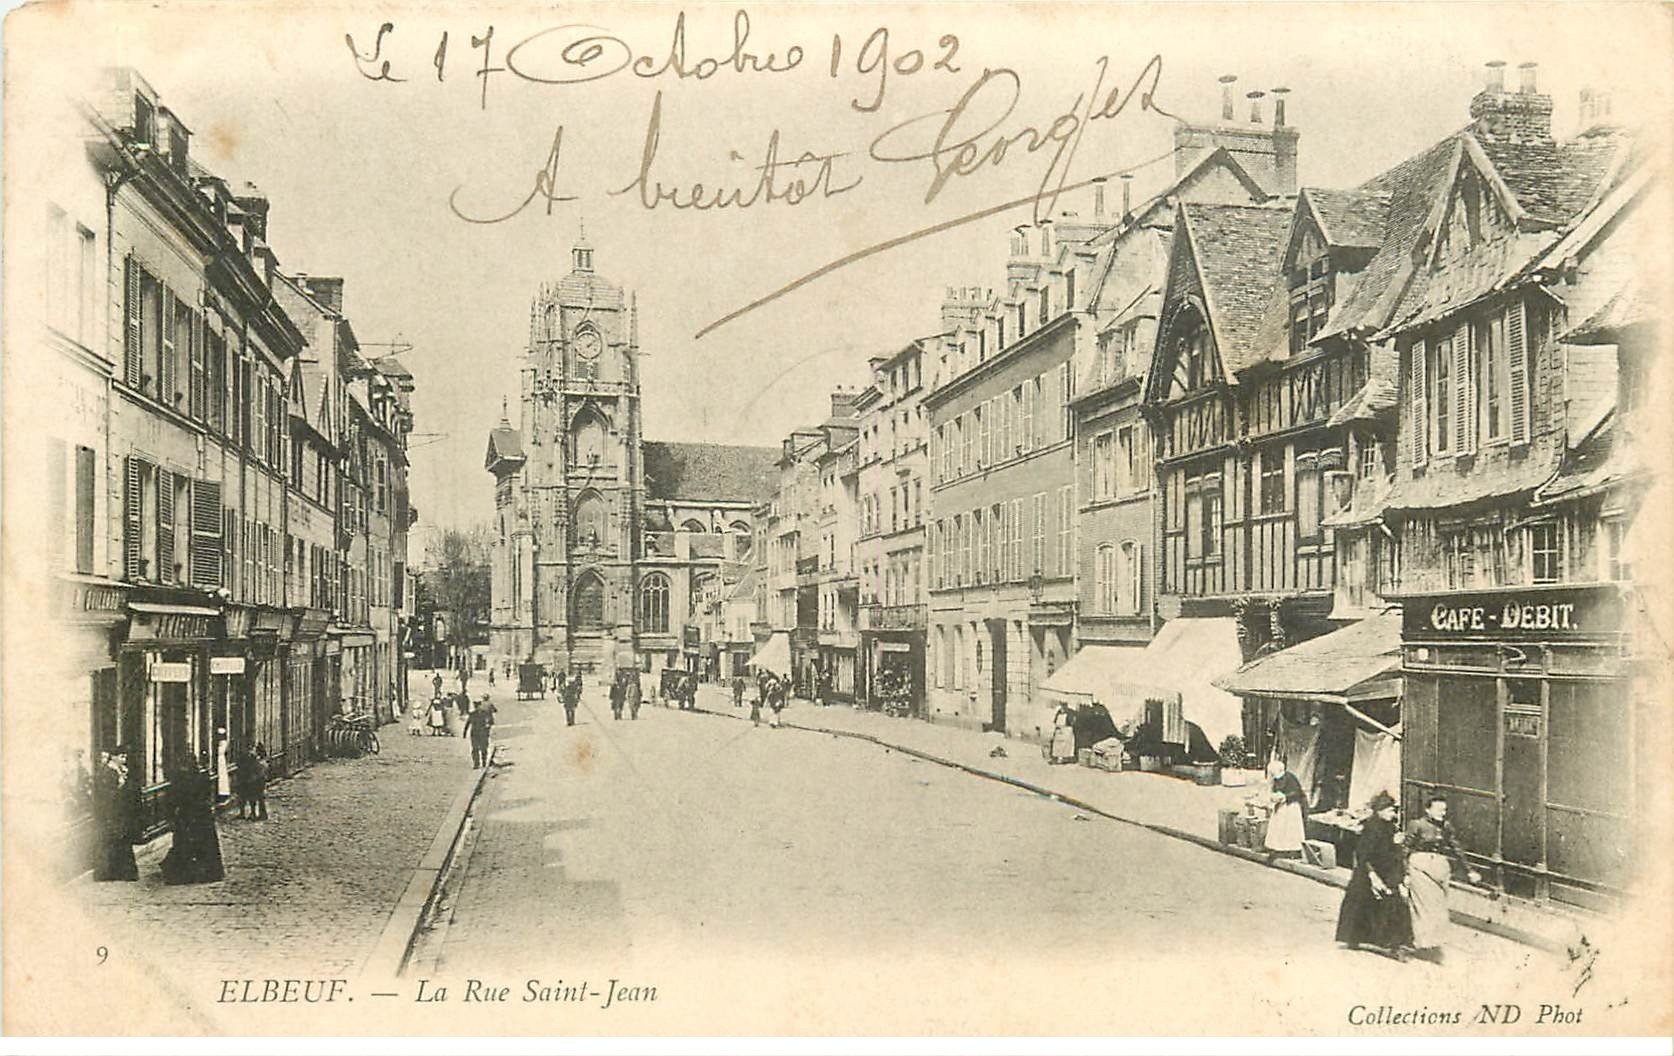 Le 17 Octobre 1902
A bientôt Georget
CAFE - DEBIT.
9
ELBEUF. — La Rue Saint-Jean
Collections ND Phot